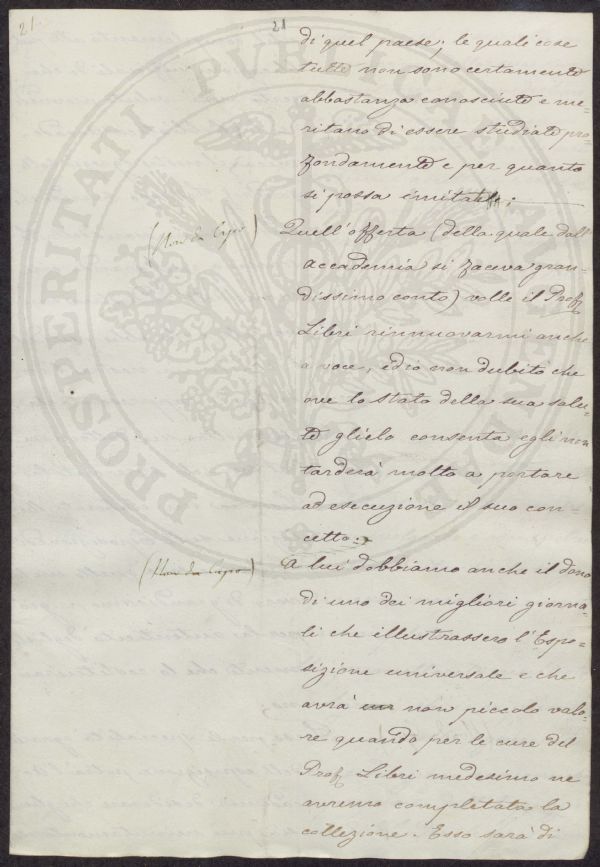 21
21
di quel paese; le quali cose
tutte non sono certamente
abbastanza conosciute e me-
ritano di essere studiate pro-
fondamente e per quanto
si possa imitate;
(Non da Capo)
Quell'offerta (della quale dall'
Accademia si faceva gran-
dissimo conto) volle il Prof.
Libri rinnuovarmi anche
a voce, ed io non dubito che
ove lo stato della sua salu-
te glielo consenta egli non
tarderà molto a portare
ad esecuzione il suo con-
cetto.
(Non da Capo)
A lui dobbiamo anche il dono
di uno dei migliori giorna-
li che illustrassero l'Espo-
sizione universale e che
avrà un non piccolo valo-
re quando per le cure del
Prof. Libri medesimo ne
avremo completata la
collezione. Esso sarà di
PROSPERITATI PUBLICAE AUGENDAE